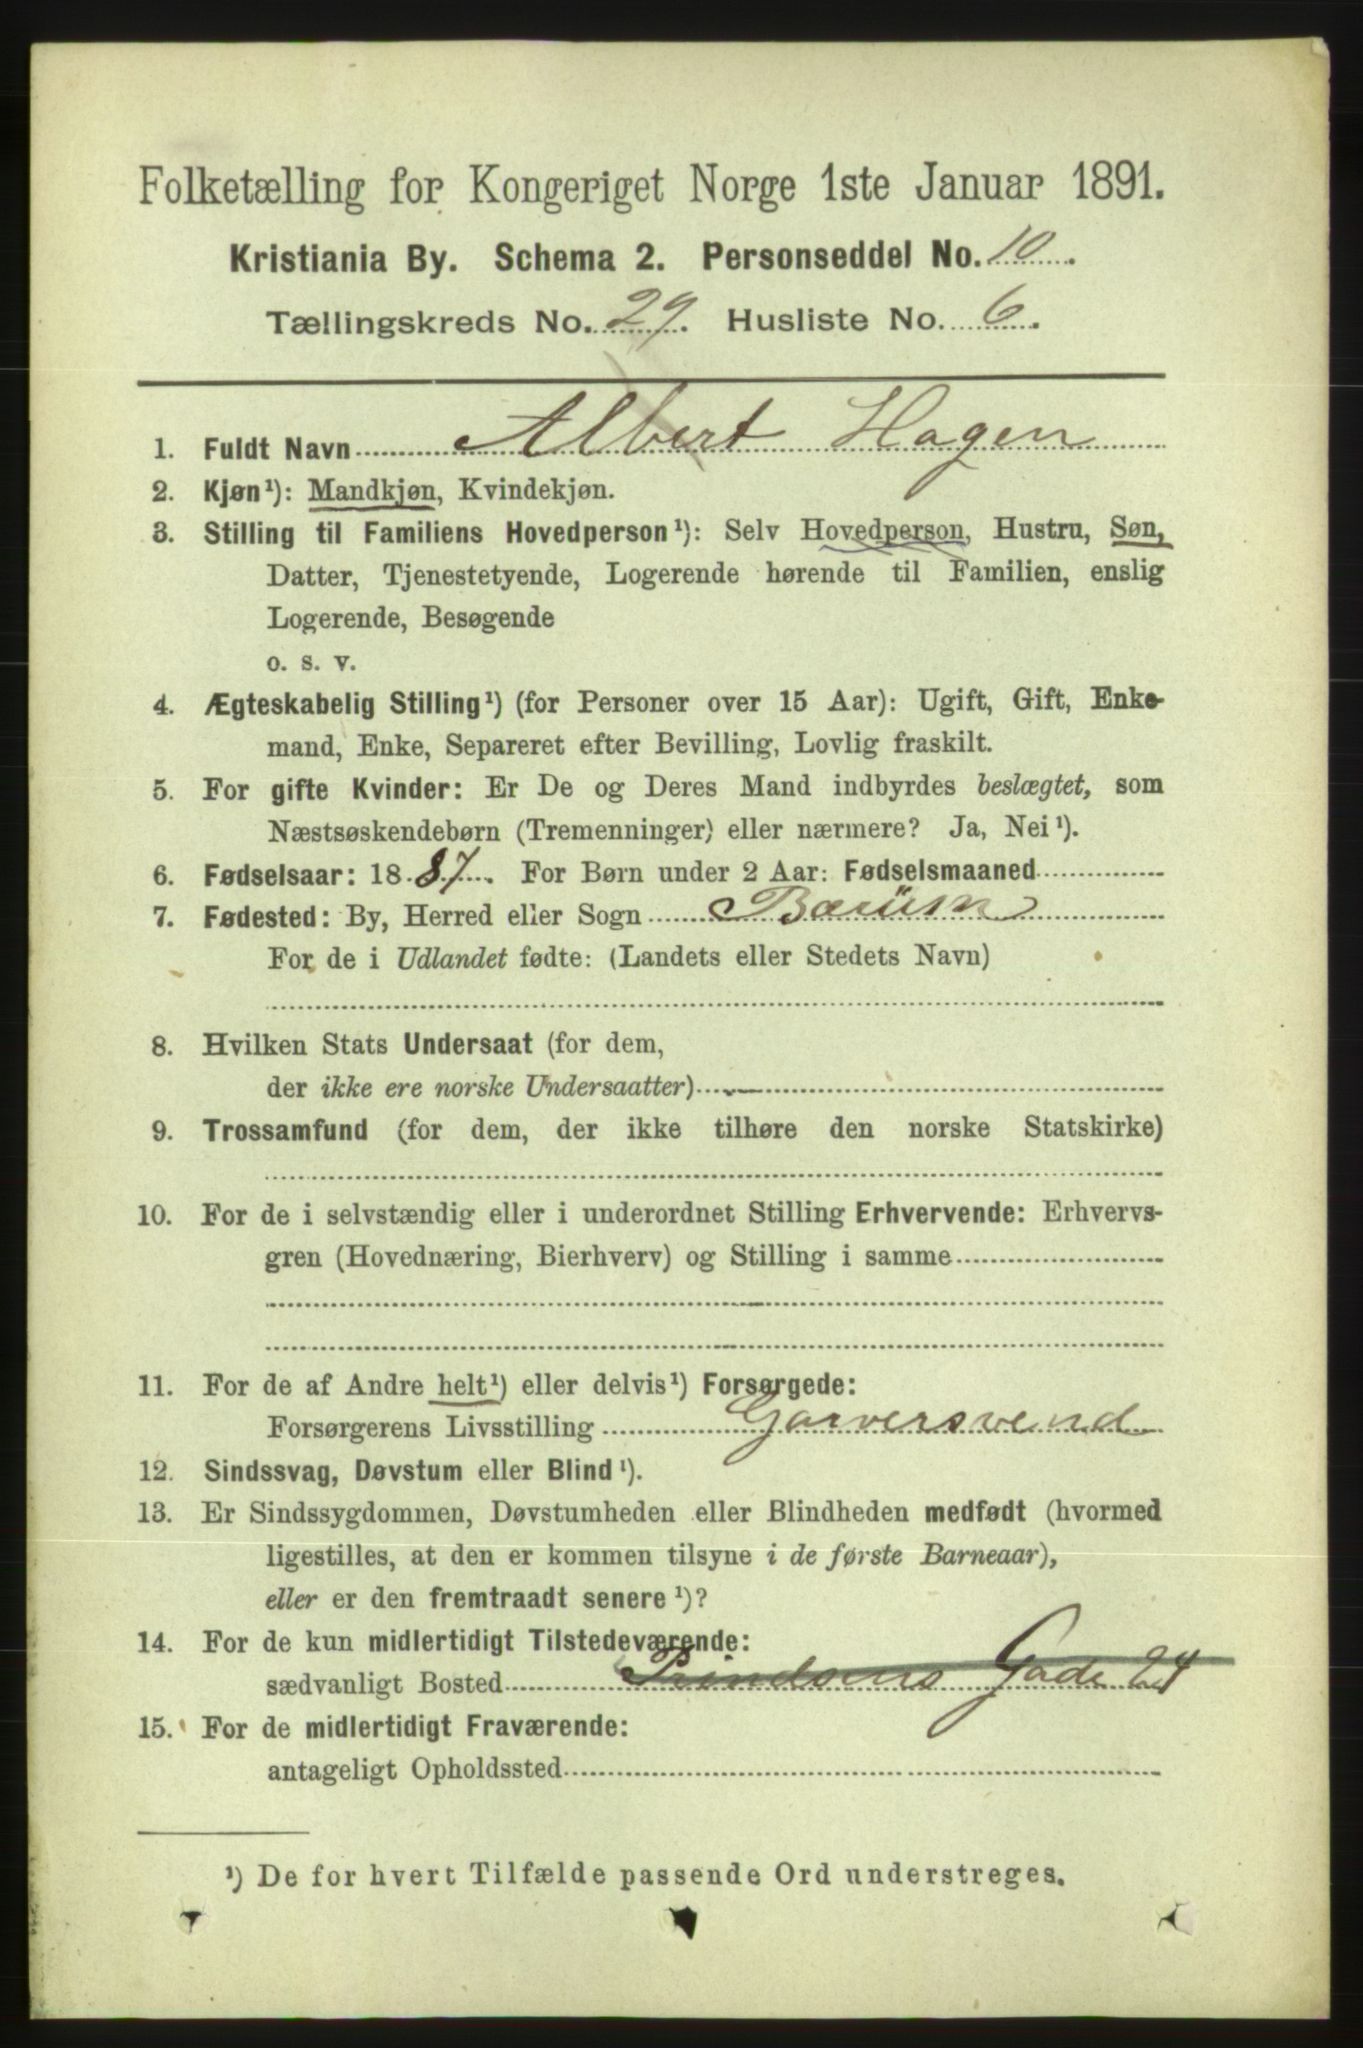 Folketælling for Kongeriget Norge 1ste Januar 1891.
Kristiania By. Schema 2. Personseddel No. 10.
Tællingskreds No. 29. Husliste No. 6.
1. Fuldt Navn Albert Hagen
2. Kjøn¹): Mandkjøn, Kvindekjøn.
3. Stilling til Familiens Hovedperson¹): Selv Hovedperson, Hustru, Søn,
Datter, Tjenestetyende, Logerende hørende til Familien, enslig
Logerende, Besøgende
o. s. v.
4. Ægteskabelig Stilling¹) (for Personer over 15 Aar): Ugift, Gift, Enke-
mand, Enke, Separeret efter Bevilling, Lovlig fraskilt.
5. For gifte Kvinder: Er De og Deres Mand indbyrdes beslægtet, som
Næstsøskendebørn (Tremenninger) eller nærmere? Ja, Nei¹).
6. Fødselsaar: 1887. For Børn under 2 Aar: Fødselsmaaned
7. Fødested: By, Herred eller Sogn Bærüm
For de i Udlandet fødte: (Landets eller Stedets Navn)
8. Hvilken Stats Undersaat (for dem,
der ikke ere norske Undersaatter)
9. Trossamfund (for dem, der ikke tilhøre den norske Statskirke)
10. For de i selvstændig eller i underordnet Stilling Erhvervende: Erhvervs-
gren (Hovednæring, Bierhverv) og Stilling i samme
11. For de af Andre helt¹) eller delvis¹) Forsørgede:
Forsørgerens Livsstilling Garversvend
12. Sindssvag, Døvstum eller Blind¹).
13. Er Sindssygdommen, Døvstumheden eller Blindheden medfødt (hvormed
ligestilles, at den er kommen tilsyne i de første Barneaar),
eller er den fremtraadt senere¹)?
14. For de kun midlertidigt Tilstedeværende:
sædvanligt Bosted Prindsens Gade 24
15. For de midlertidigt Fraværende:
antageligt Opholdssted
¹) De for hvert Tilfælde passende Ord understreges.